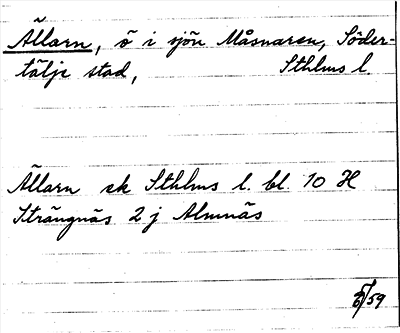 Ällarn, ö i sjön Måsnaren, Söder-
tälje stad, Sthlms l.
Ällarn sk Sthlms l. bl. 10 H
Strängnäs 2 j Almnäs
/59